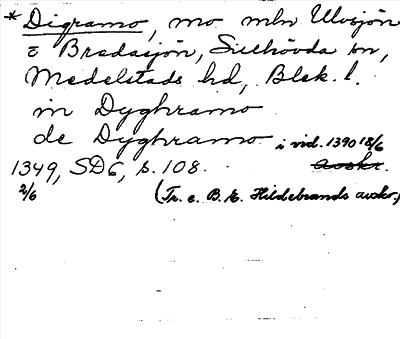 * Digramo, mo mln Ulvsjön
o Bredasjön, Sillhövda sn,
Medelstads hd, Blek. l.
in Dyghramo
de Dyghramo i vid. 1390 18/6
1349, SD6, s. 108. avskr.
2/6 (Tr. e. B. E. Hildebrands avskr.)